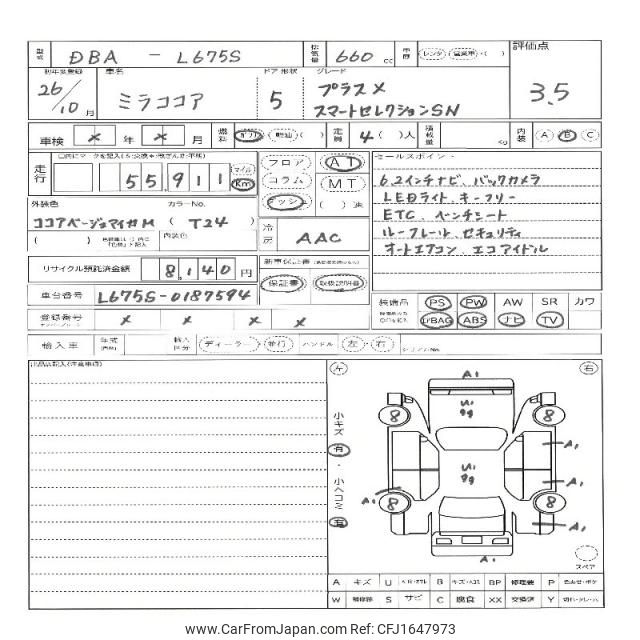 型式 DBA - L675S 排気量 660 cc 車歴 レンタ 営業車・( ) 評価点
初年度登録 車名 ドア 形状 グレード
26/10月 ミラココア 5 プラスX 3.5
スマートセレクションSN
車検 × 年 × 月 燃料 ガソリン 軽油 ( ) 定員 4( )人 積載量 kg 内装 A B C
走行 55,911 マイル Km フロア AT セールスポイント
コラム MT 6.2インチナビ バックカメラ
デッシ ( )速 LEDライト キーフリー
外装色 カラーNo. ETC ベンチシート
ココアベージュマイカM ( T24 ) 冷房 AAC ルーフレール セキュリティ
( ) 内装色 オートエアコン エコアイドル
リサイクル預託済金額 8,140円 新車保証書
保証書 取扱説明書
車台番号 L675S-0187594 装備品 PS PW AW SR カワ
登録番号 × × × × D²BAG ABS ナビ TV
輸入車 年式 輸入区分 ディーラー・並行 ハンドル 左・右
左 右
A1
U1
99
8 8
小キズ 有・小ヘコミ 有
A1
U1
99
A1
A1
8 8
A1
A1
スペア
A キズ U B キズ・ヘコミ BP 修理跡 P
W 補修跡 S サビ C 腐食 XX 交換済 Y
www.CarFromJapan.com - CFJ1647973